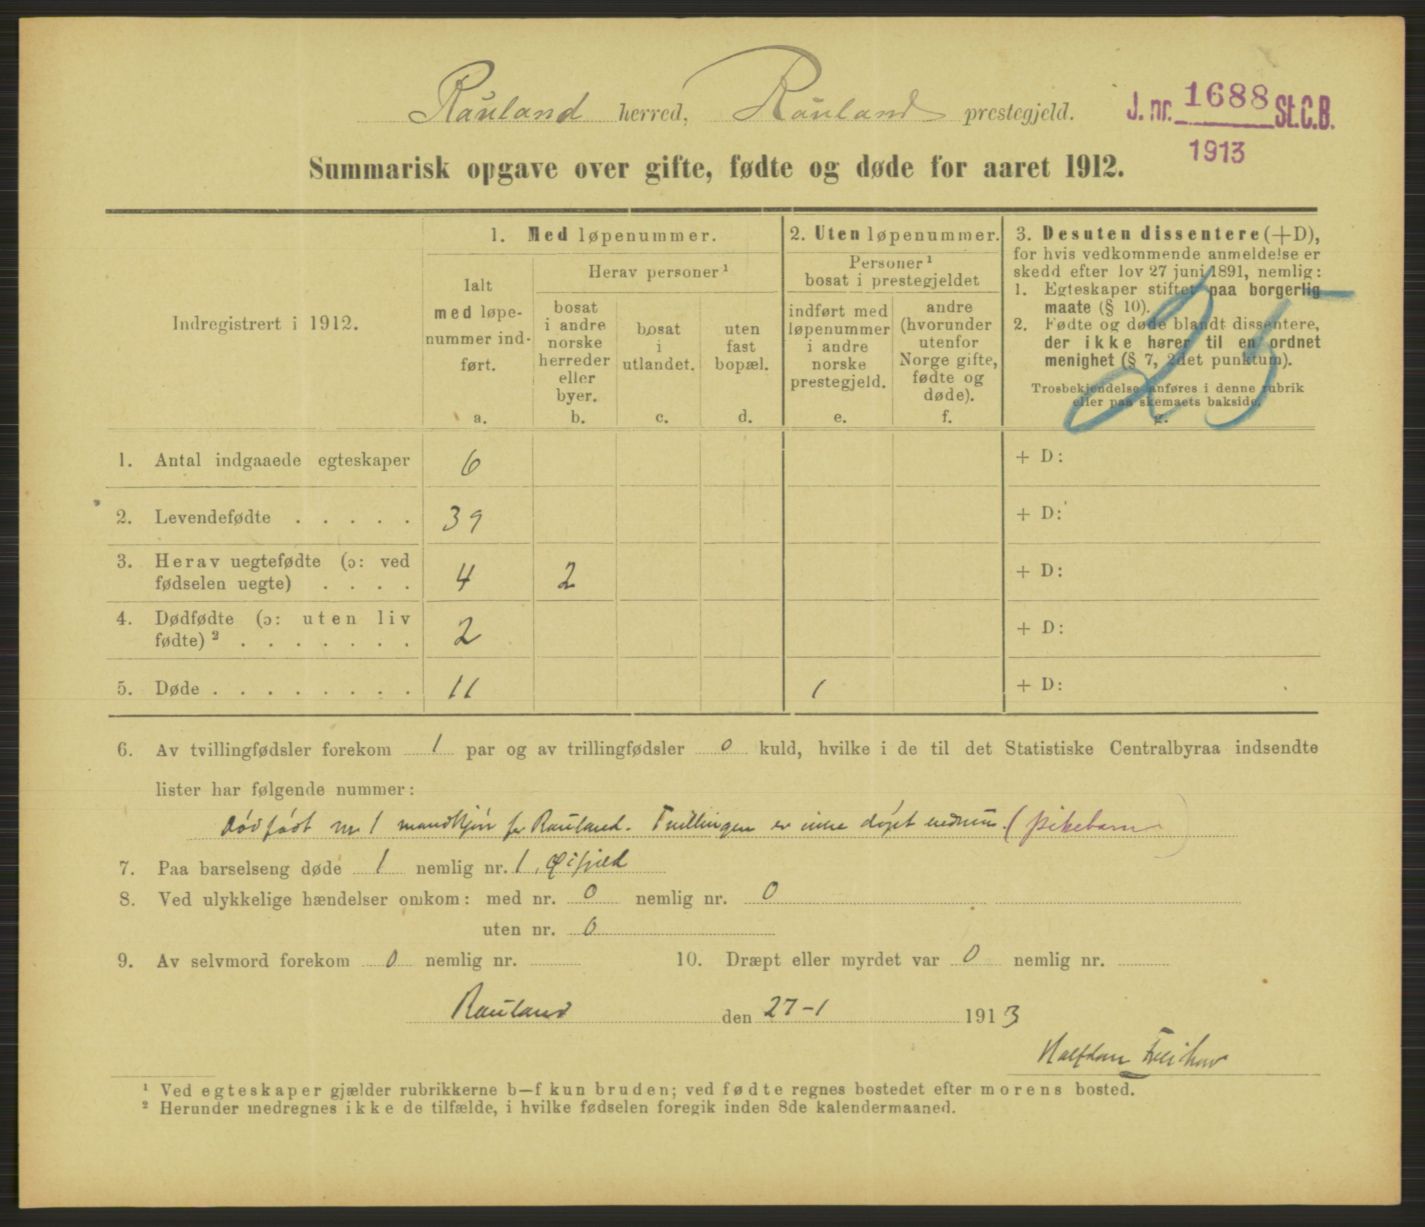 Rauland herred, Rauland prestegjeld.
J. nr. 1688 St.C.B.
1913
Summarisk opgave over gifte, fødte og døde for aaret 1912.
Indregistrert i 1912.
1. Med løpenummer.
Ialt
med løpe-
nummer ind-
ført.
a.
Herav personer ¹
bosat
i andre
norske
herreder
eller
byer.
b.
bosat
i
utlandet.
c.
uten
fast
bopæl.
d.
2. Uten løpenummer.
Personer ¹
bosat i prestegjeldet
indført med
løpenummer
i andre
norske
prestegjeld.
e.
andre
(hvorunder
utenfor
Norge gifte,
fødte og
døde).
f.
3. Desuten dissentere (+D),
for hvis vedkommende anmeldelse er
skedd efter lov 27 juni 1891, nemlig:
1. Egteskaper stiftet paa borgerlig
maate (§ 10).
2. Fødte og døde blandt dissentere,
der ikke hører til en ordnet
menighet (§ 7, 2det punktum).
Trosbekjendelse anføres i denne rubrik
eller paa skemaets bakside.
g.
25
1. Antal indgaaede egteskaper 6 + D:
2. Levendefødte . . . . . 39 + D:
3. Herav uegtefødte (ɔ: ved
fødselen uegte) . . . . 4 2 + D:
4. Dødfødte (ɔ: uten liv
fødte) ² . . . . . . . 2 + D:
5. Døde . . . . . . . . 11 1 + D:
6. Av tvillingfødsler forekom 1 par og av trillingfødsler 0 kuld, hvilke i de til det Statistiske Centralbyraa indsendte
lister har følgende nummer:
Dødfødt nr 1 mandkjøn for Rauland. Tvillingen er (pikebarn)
7. Paa barselseng døde 1 nemlig nr. 1, Øifjeld
8. Ved ulykkelige hændelser omkom: med nr. 0 nemlig nr. 0
uten nr. 0
9. Av selvmord forekom 0 nemlig nr.
10. Dræpt eller myrdet var 0 nemlig nr.
Rauland den 27-1 1913
Halfdan
¹ Ved egteskaper gjælder rubrikkerne b—f kun bruden; ved fødte regnes bostedet efter morens bosted.
² Herunder medregnes ikke de tilfælde, i hvilke fødselen foregik inden 8de kalendermaaned.